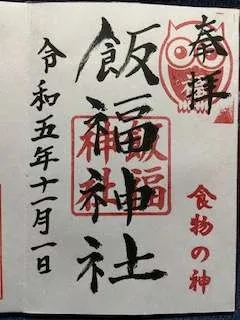 奉拝
食物の神
飯福神社
飯福
神社
令和五年十一月一日